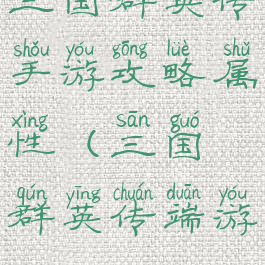 三国群英传
shǒu yóu gōng lüè shǔ
手游攻略属
xìng sān guó
性(三国
qún yīng chuán duān yóu
群英传端游